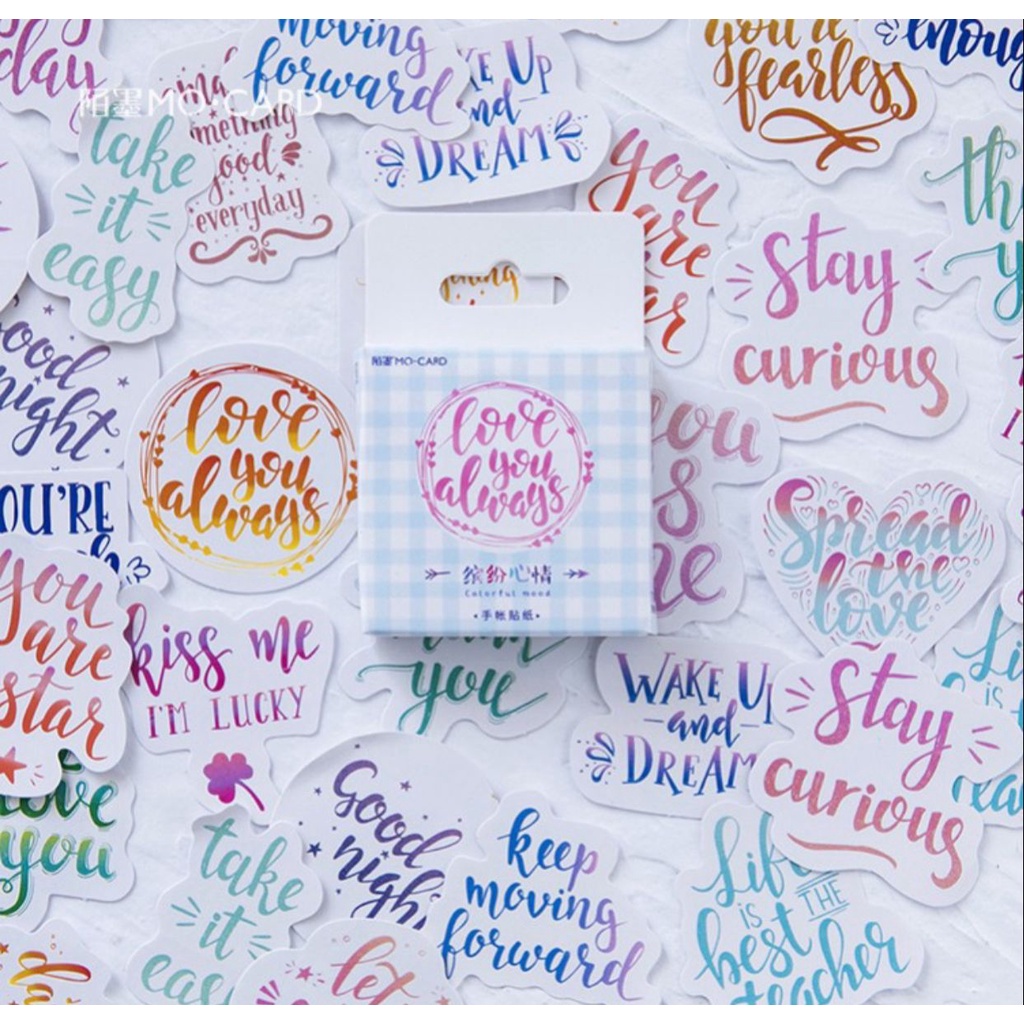 day
moving
forward
陌墨 MO·CARD
WAKE UP
and
DREAM
you're
fearless
enough
take
it
easy
something
good
everyday
you
are
stay
curious
good
night
陌墨 MO·CARD
love
you
always
love
you
always
缤纷心情
Colorful mood
·手帐贴纸·
you
YOU'RE
Spread
the
love
you
are
star
kiss me
I'M LUCKY
you
WAKE UP
and
DREAM
stay
curious
love
you
Good
night
take
it
easy
keep
moving
forward
Life
IS THE
best
teacher
let